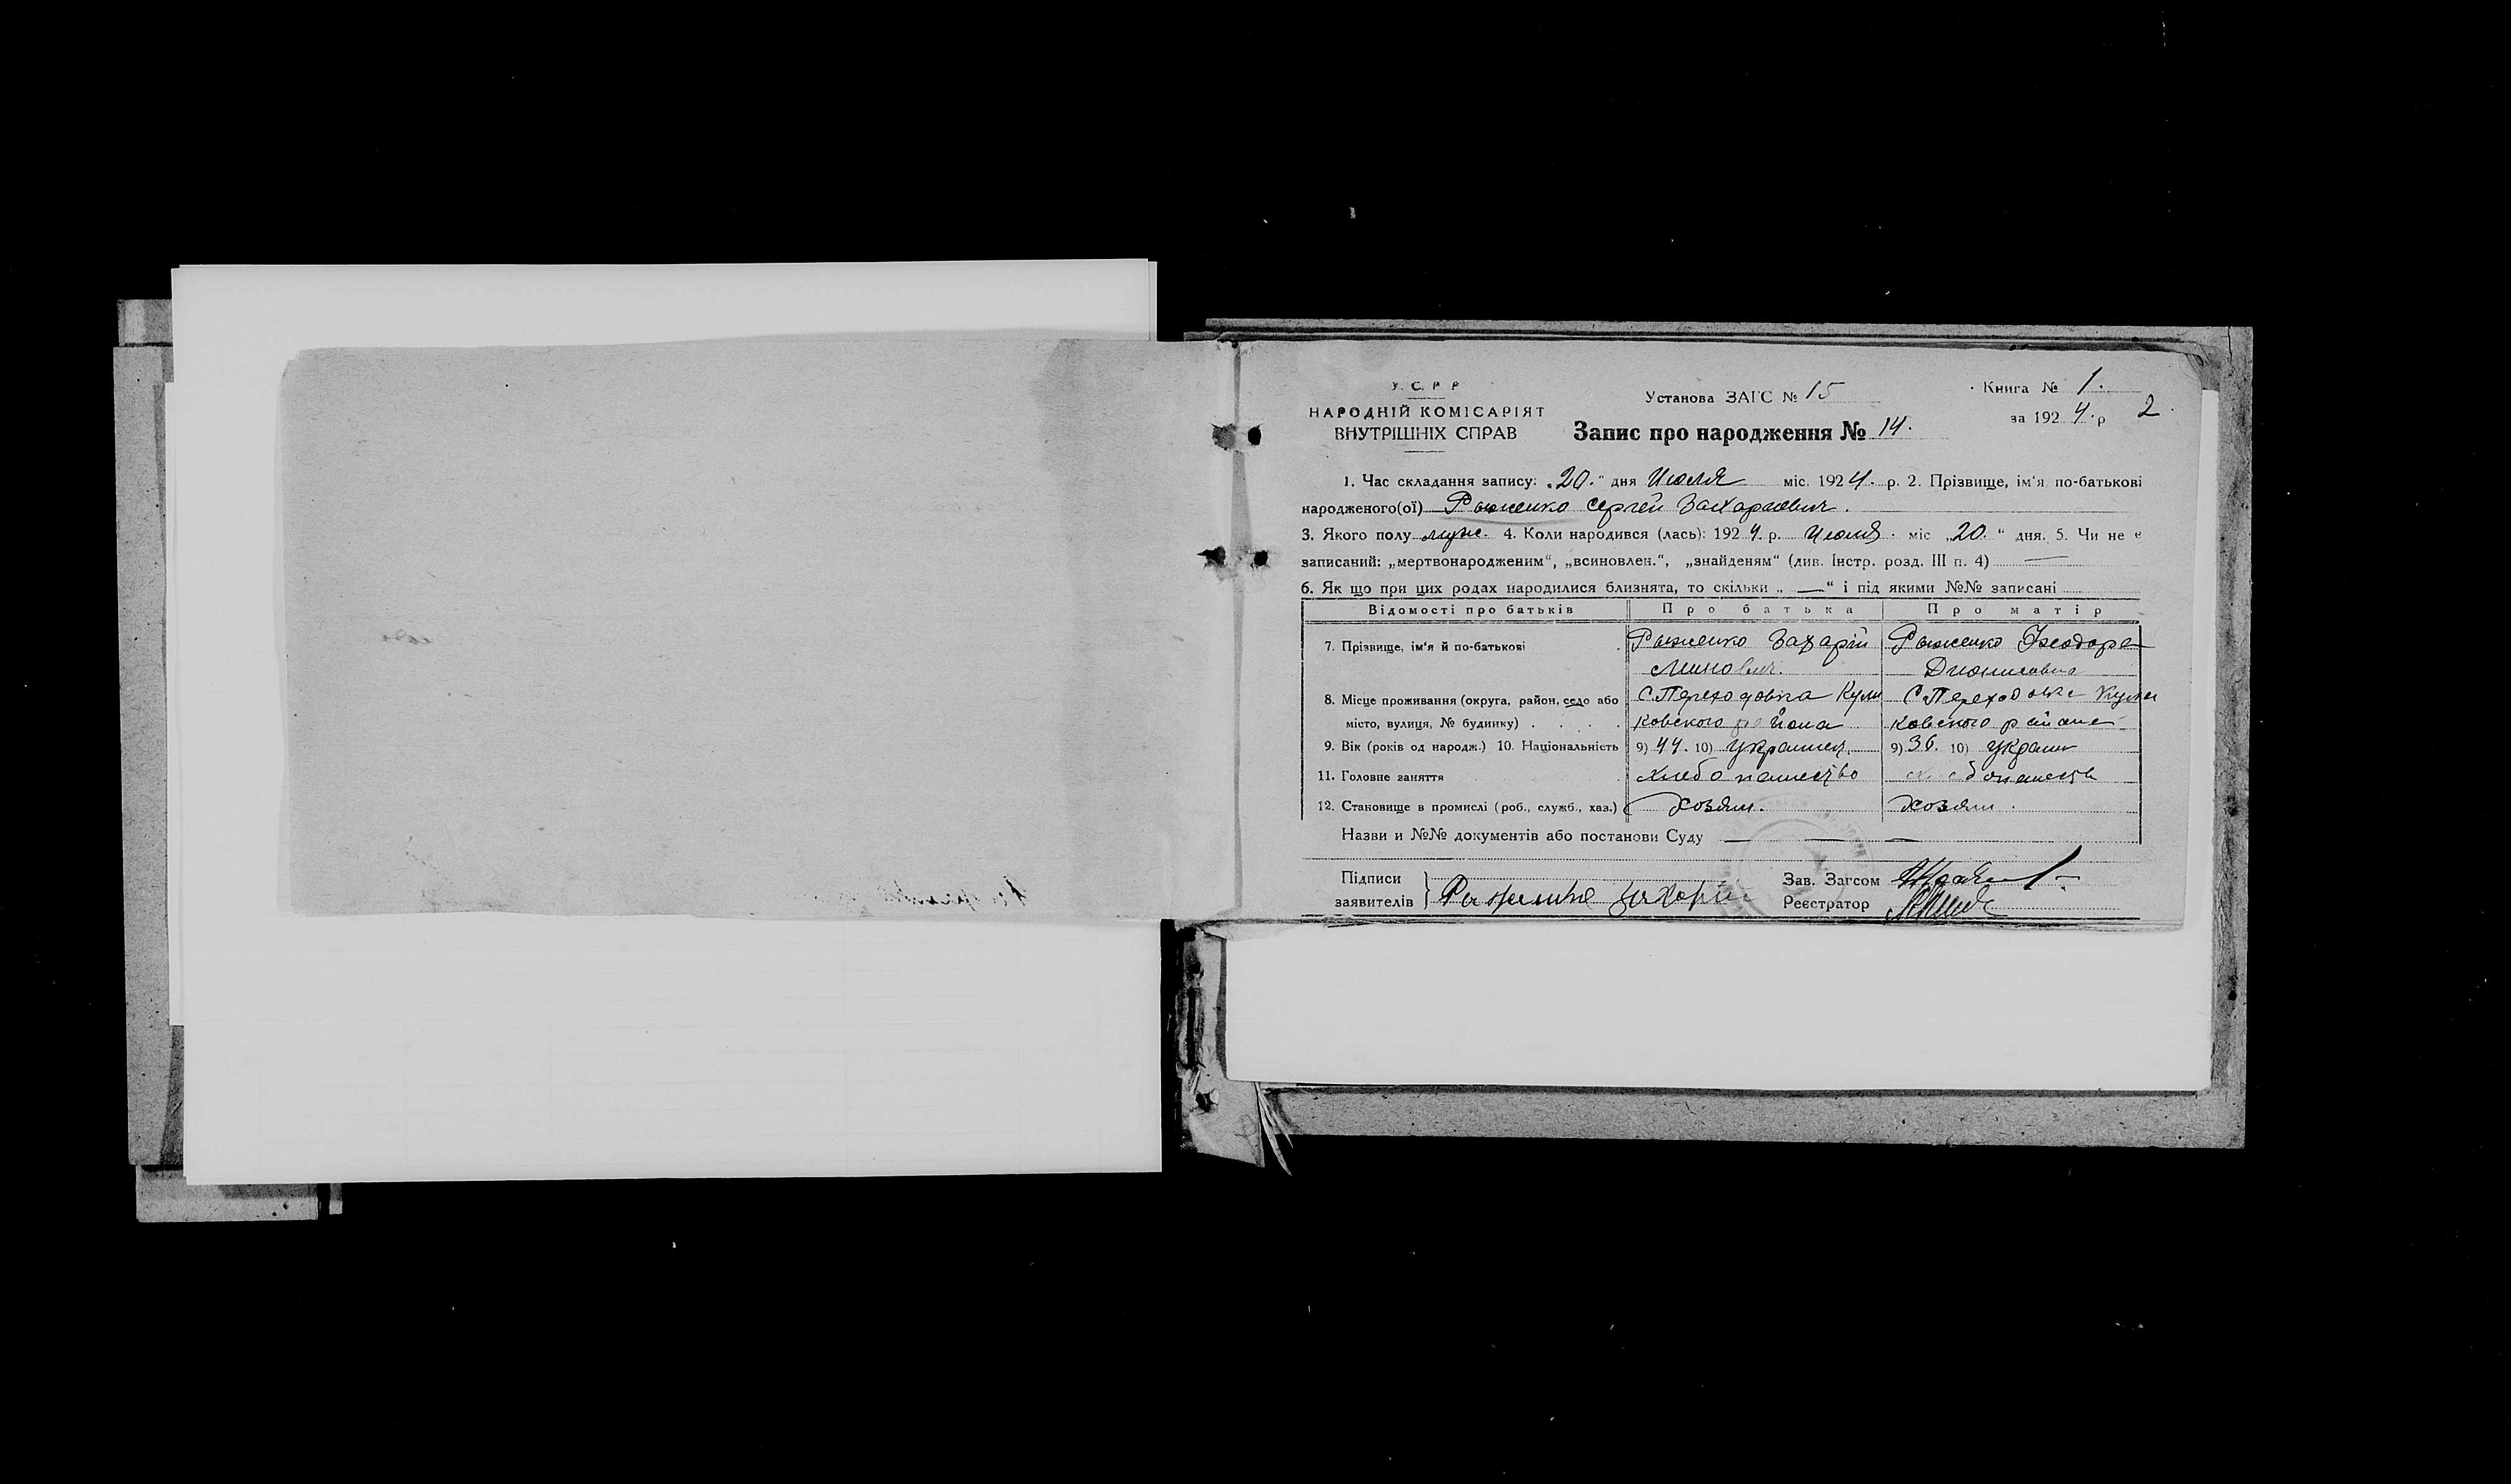 У. С. Р. Р
НАРОДНІЙ КОМІСАРІЯТ
ВНУТРІШНІХ СПРАВ
Установа ЗАГС № 15
Запис про народження № 14.
Книга № 1.
за 1924. р 2.
1. Час складання запису: „20.“ дня Июля міс. 1924. р. 2. Прізвище, ім‘я по-батькові
народженого(ої) Рыженко Сергей Захариевич.
3. Якого полу муж. 4. Коли народився (лась): 1924. р. Июля. міс „20.“ дня. 5. Чи не є
записаний: „мертвонародженим“, „всиновлен.“, „знайденям“ (див. Інстр. розд. III п. 4) —
6. Як що при цих родах народилися близнята, то скільки „ — “ і під якими №№ записані
Відомості про батьків Про батька Про матір
7. Прізвище, ім‘я й по-батькові Рыженко Захарий Рыженко Феодора
Минович. Дионисовна
8. Місце проживання (округа, район, село або С. Переходовка Кули С. Переходовка Кули
місто, вулиця, № будинку) ковского района ковского района
9. Вік (років од народж.) 10. Національність 9) 44. 10) Украинец. 9) 36. 10) Украин
11. Головне заняття хлебопашество хлебопашеств
12. Становище в промислі (роб., служб., хаз.) хозяин. хозяин.
Назви и №№ документів або постанови Суду — — —
Підписи
заявителів } Рыженко Захарий
Зав. Загсом
Реєстратор